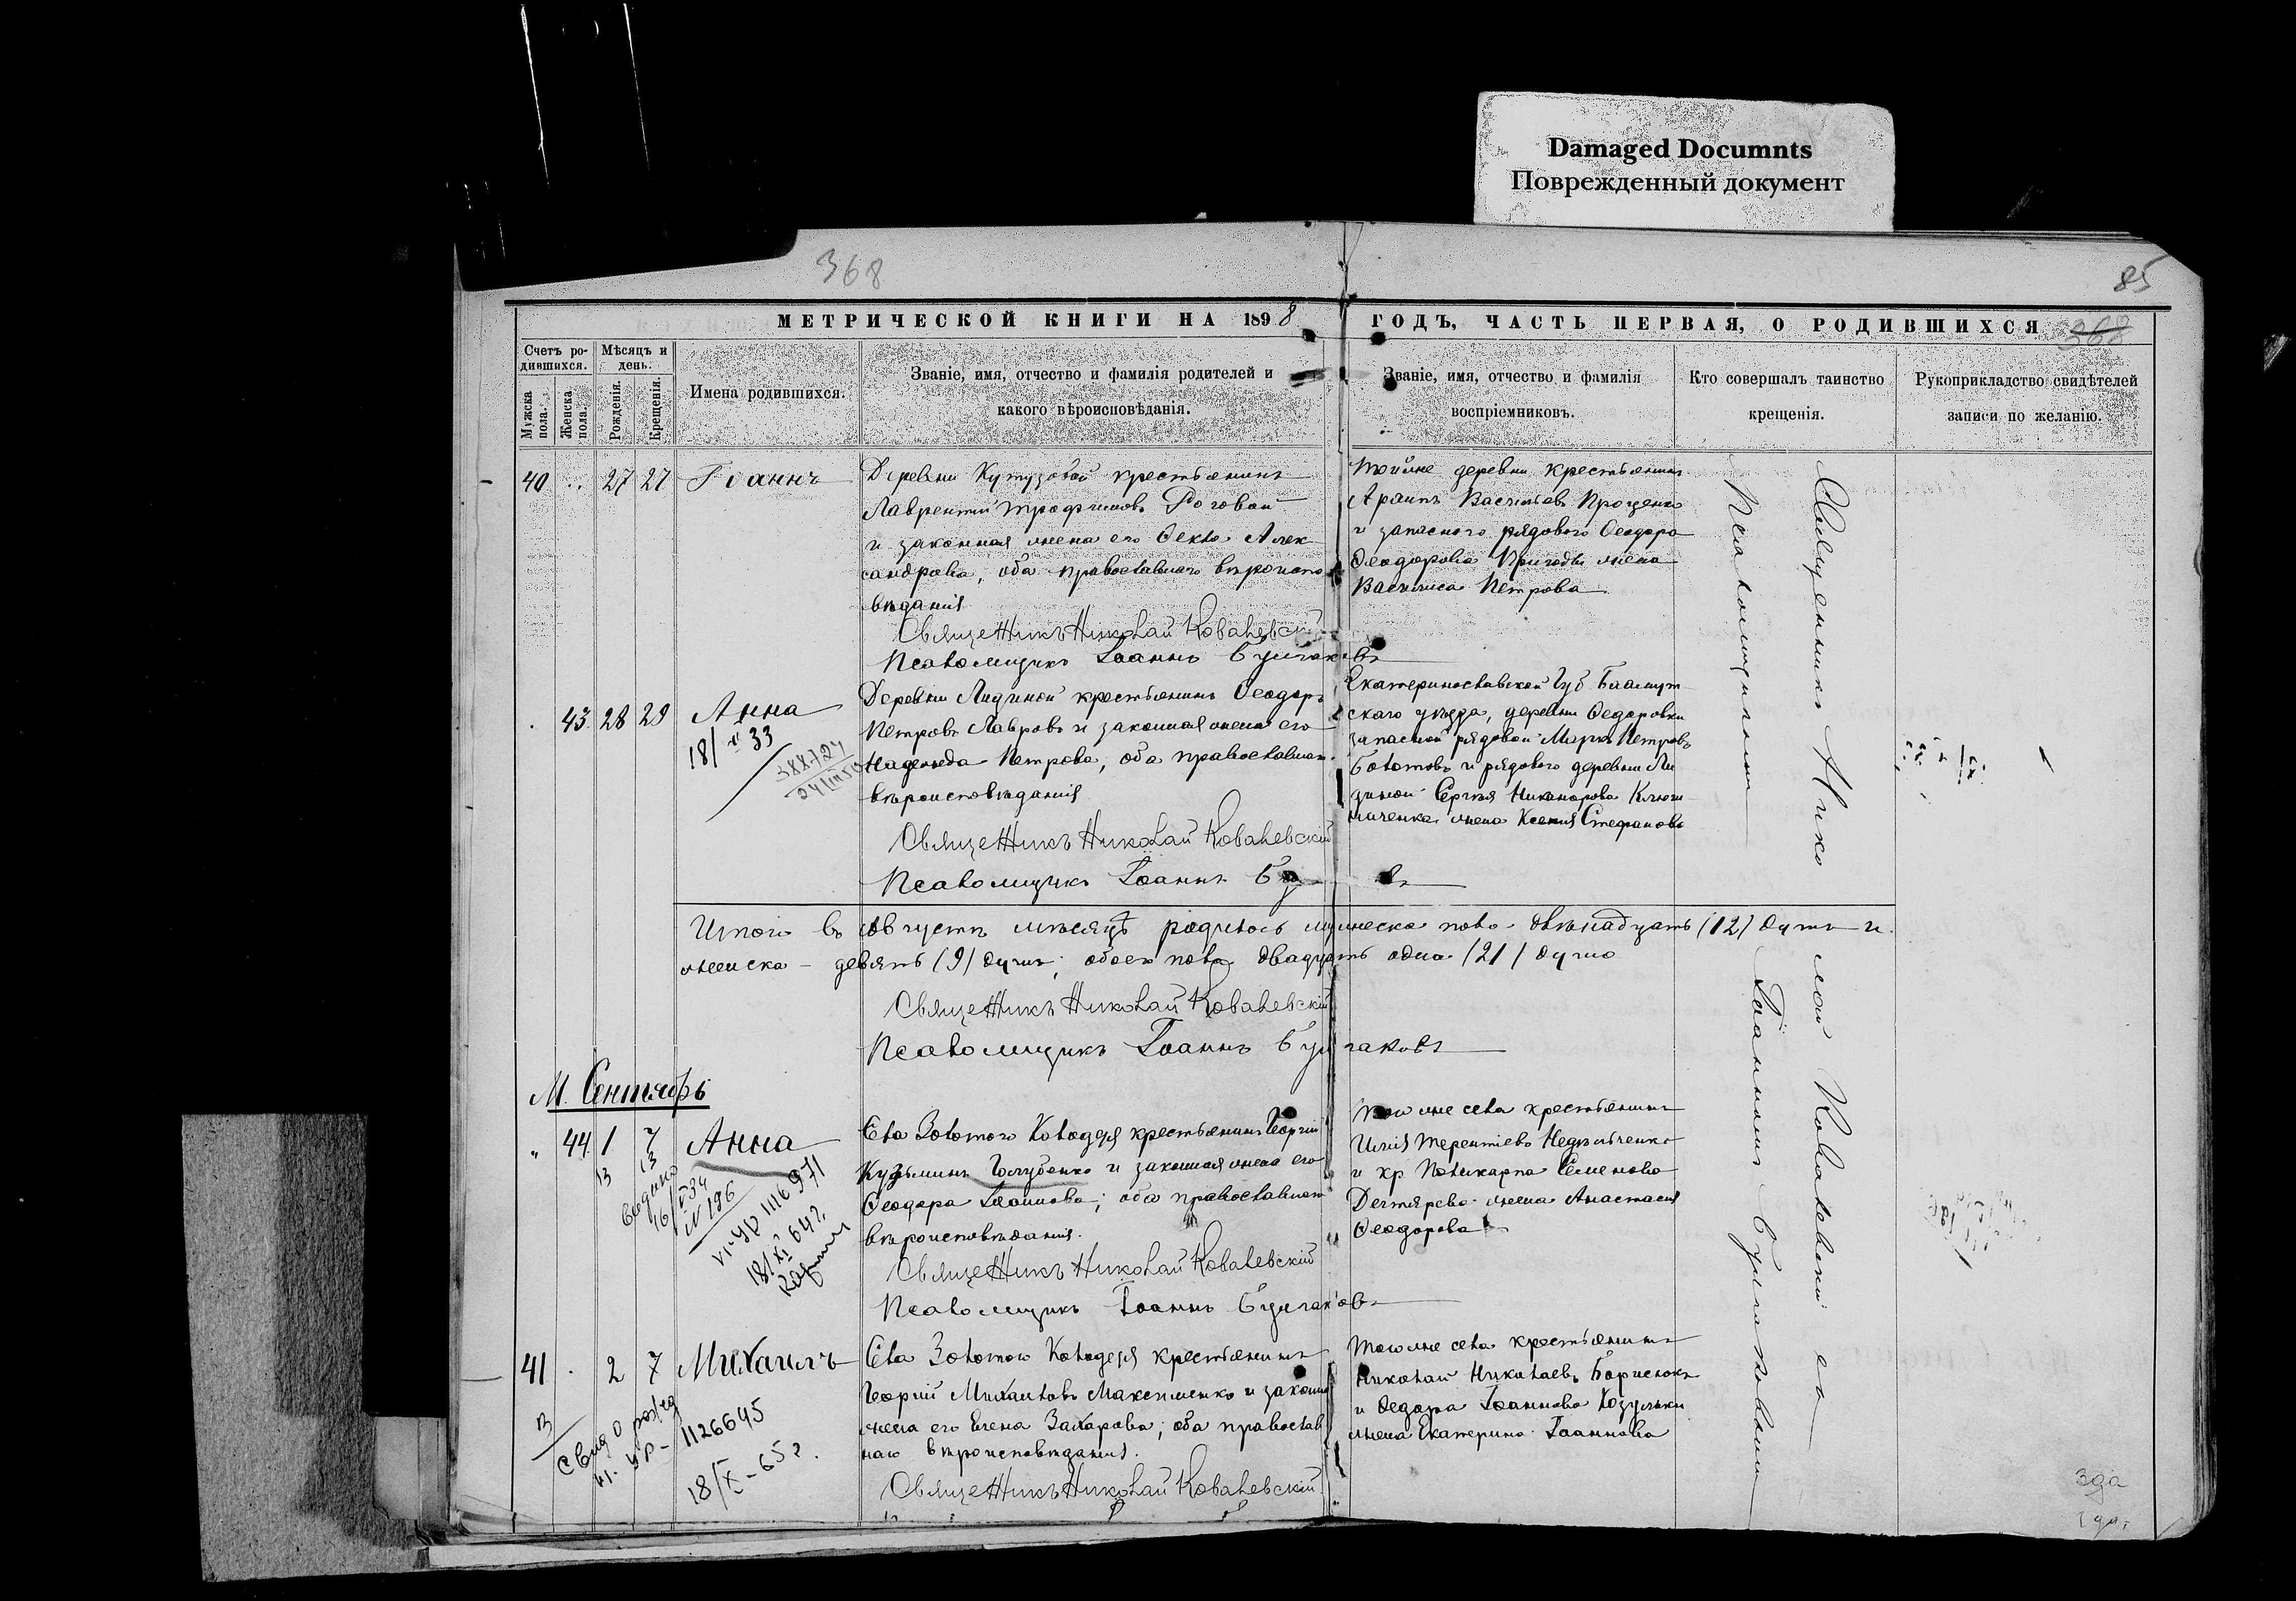 Damaged Documnts
Поврежденный документ
368
85
МЕТРИЧЕСКОЙ КНИГИ НА 1898 ГОДЪ, ЧАСТЬ ПЕРВАЯ, О РОДИВШИХСЯ
368
Счетъ родившихся.
Мужска пола.
Женска пола.
Мѣсяцъ и день.
Рожденія.
Крещенія.
Имена родившихся.
Званіе, имя, отчество и фамилія родителей и
какого вѣроисповѣданія.
Званіе, имя, отчество и фамилія
воспріемниковъ.
Кто совершалъ таинство
крещенія.
Рукоприкладство свидѣтелей
записи по желанію.
40 27 27 Іоаннъ
Деревни Кутузовой крестьянинъ
Лаврентій Трофимовъ Роговой
и законная жена его Фекла Алек
сандрова, оба православнаго вѣроиспо
вѣданія
Священникъ Николай Ковалевскій
Псаломщикъ Іоаннъ Булгаковъ
Тойже деревни крестьянинъ
Архипъ Васильевъ Проценко
и запаснаго рядового Ѳеодора
Ѳеодорова Пригоды жена
Василиса Петрова
43 28 29 Анна
18/ 33
388724
Деревни Лидиной крестьянинъ Ѳеодоръ
Петровъ Лавровъ и законная жена его
Надежда Петрова, оба православнаг.
вѣроисповѣданія
Священникъ Николай Ковалевскій
Псаломщикъ Іоаннъ
Екатеринославской Губ Бахмут
скаго уѣзда, деревни Ѳедоровки
запасной рядовой Маркъ Петровъ
Болотовъ и рядового деревни Ли
диной Сергѣя Никанорова
жена Ксенія Стефанова
Итого въ Августѣ мѣсяцѣ родилось мужеска пола двѣнадцать (12) душъ и
женска - девять (9) душъ; обоего пола двадцать одна (21) душа
Священникъ Николай Ковалевскій
Псаломщикъ Іоаннъ Булгаковъ
М. Сентябрь
44 1 7 Анна
13 13
16/V 34
N 196
VI-УР 1116971
18/XI 64 г.
Села Золотого Колодезя крестьянинъ Георгій
Кузьминъ Голубенко и законная жена его
Ѳеодора Іоаннова; оба православнаг
вѣроисповѣданія.
Священникъ Николай Ковалевскій
Псаломщикъ Іоаннъ Булгаковъ
Того же села крестьянинъ
Илія Терентіевъ
и кр Поликарпа Семенова
Дегтярева жена Анастасія
Ѳеодорова
41 2 7 Михаилъ
13
Свид о рожд
VI-УР- 1126645
18/X-65 г.
Села Золотого Колодезя крестьянинъ
Георгій Михаиловъ Максименко и законн
жена его Елена Захарова; оба православ
наго вѣроисповѣданія.
Священникъ Николай Ковалевскій
Того же села крестьянинъ
Николай Николаевъ
и Ѳедора Іоаннова Козульки
жена Екатерина Іоаннова
Священникъ Николай Ковалевскій съ
Псаломщикомъ Іоанномъ Булгаковымъ